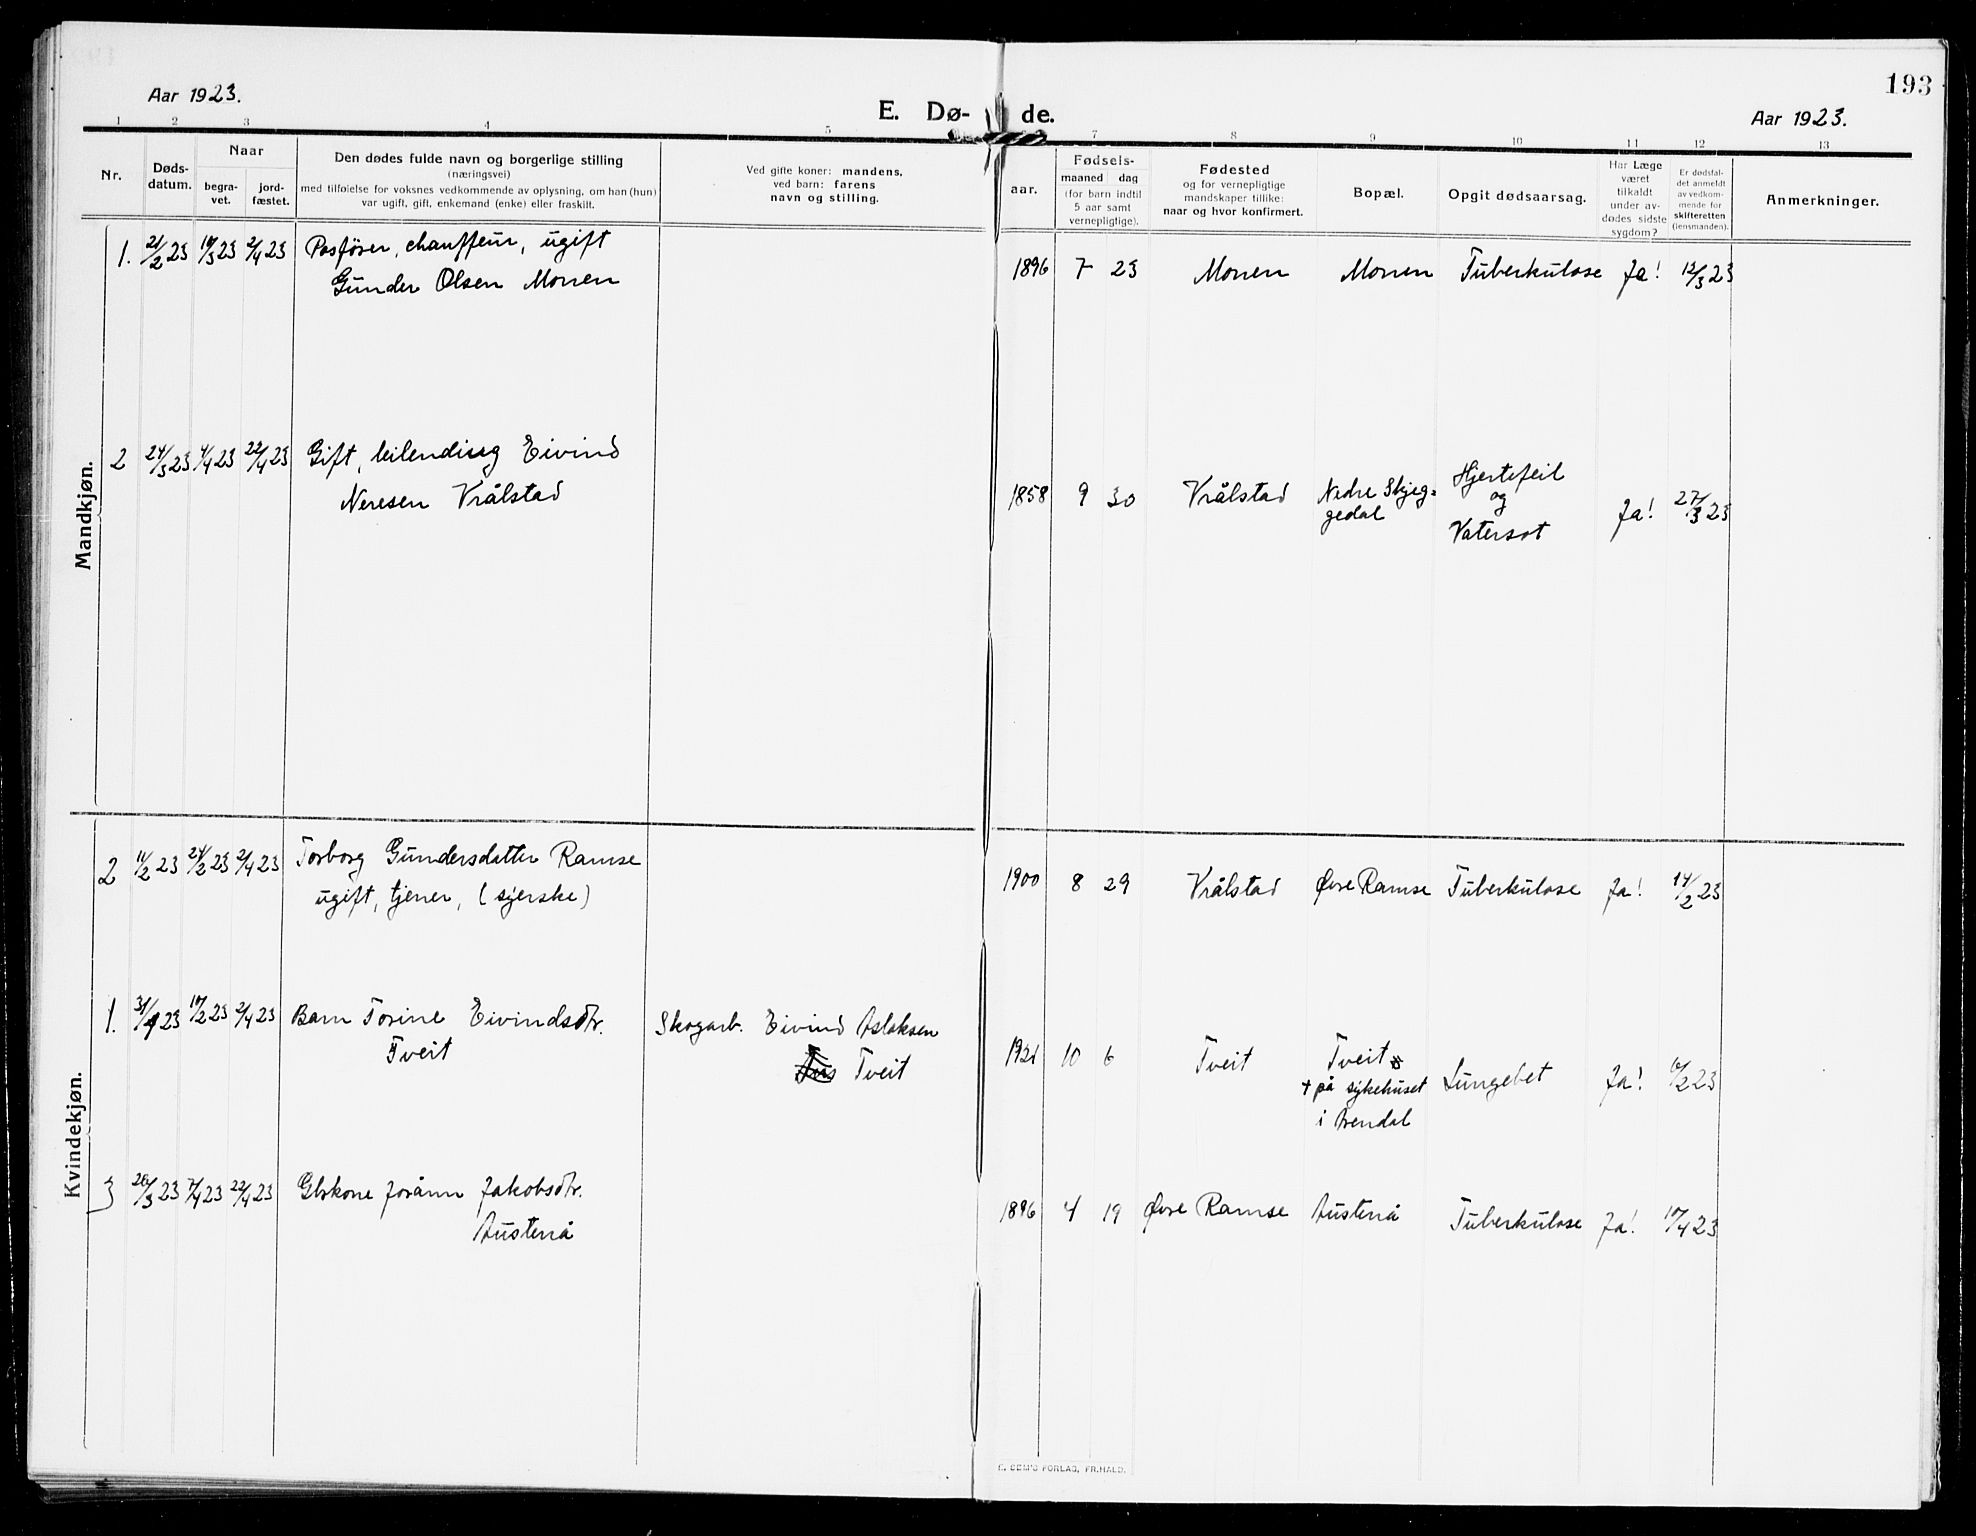 193
Aar 1923.
E. Dø- de.
Aar 1923.
1 2 3 4 5 7 8 9 10 11 12 13
Nr.
Døds-
datum.
Naar
begra-
vet.
jord-
fæstet.
Den dødes fulde navn og borgerlige stilling
(næringsvei)
med tilføielse for voksnes vedkommende av oplysning, om han (hun)
var ugift, gift, enkemand (enke) eller fraskilt.
Ved gifte koner: mandens,
ved barn: farens
navn og stilling.
aar.
Fødsels-
maaned dag
(for barn indtil
5 aar samt
vernepligtige).
Fødested
og for vernepligtige
mandskaper tillike:
naar og hvor konfirmert.
Bopæl.
Opgit dødsaarsag.
Har Læge
været
tilkaldt
under av-
dødes sidste
sygdom?
Er dødsfal-
det anmeldt
av vedkom-
mende for
skifteretten
(lensmanden).
Anmerkninger.
Mandkjøn.
1. 21/2 23 10/3 23 2/4 23 Postfører, chauffeur, ugift
Gunder Olsen Monen
1896 7 23 Monen Monen Tuberkulose Ja! 12/3 23
2 24/3 23 4/4 23 22/4 23 Gift, leilending Eivind
Neresen Vrålstad
1858 9 30 Vrålstad Nedre Skjeg=
gedal
Hjertefeil
og
Vatersot
Ja! 27/3 23
Kvindekjøn.
2 11/2 23 24/2 23 2/4 23 Torborg Gundersdatter Ramse
ugift, tjener, (syerske)
1900 8 29 Vrålstad Øvre Ramse Tuberkulose Ja! 14/2 23
1. 31/1 23 10/2 23 2/4 23 Barn Torine Eivindsdtr.
Tveit
Skogarb. Eivind Aslaksen
Tveit
1921 10 6 Tveit Tveit
+ på sykehuset
i Arendal
Lungebet Ja! 10/2 23
3 26/3 23 7/4 23 22/4 23 Gbrkone Jorånn Jakobsdtr.
Austenå
1896 4 19 Øvre Ramse Austenå Tuberkulose Ja! 10/4 23
E. SEM'S FORLAG, FR.HALD.